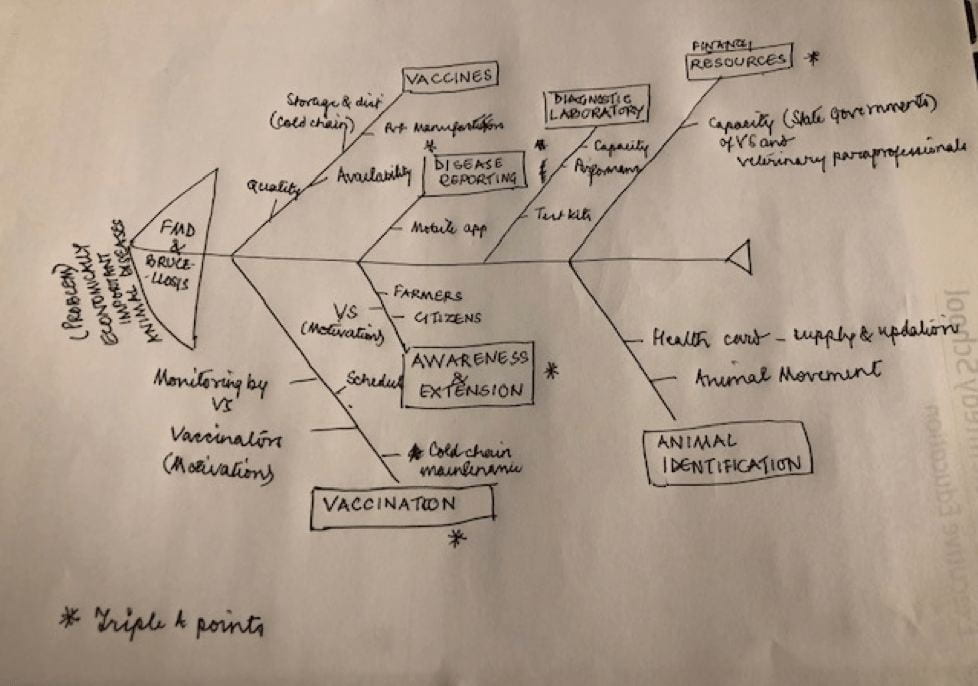 FINANCE/
RESOURCES *
VACCINES
DIAGNOSTIC
LABORATORY
Storage & dist
(Cold chain)
Availability
Quality
*
DISEASE
REPORTING
Mobile app
*
Capacity
Test kits
Capacity (State Governments)
of VS and
veterinary paraprofessionals
(PROBLEM)
ECONOMICALLY
IMPORTANT
ANIMAL DISEASES
FMD
&
BRUCE-
-LLOSIS
FARMERS
CITIZENS
VS
(Motivations)
AWARENESS
&
EXTENSION
*
Monitoring by
VS
Schedul
Vaccinators
(Motivations)
Cold chain
maintenance
VACCINATION
*
Health card - supply & updation
Animal Movement
ANIMAL
IDENTIFICATION
* Triple A points